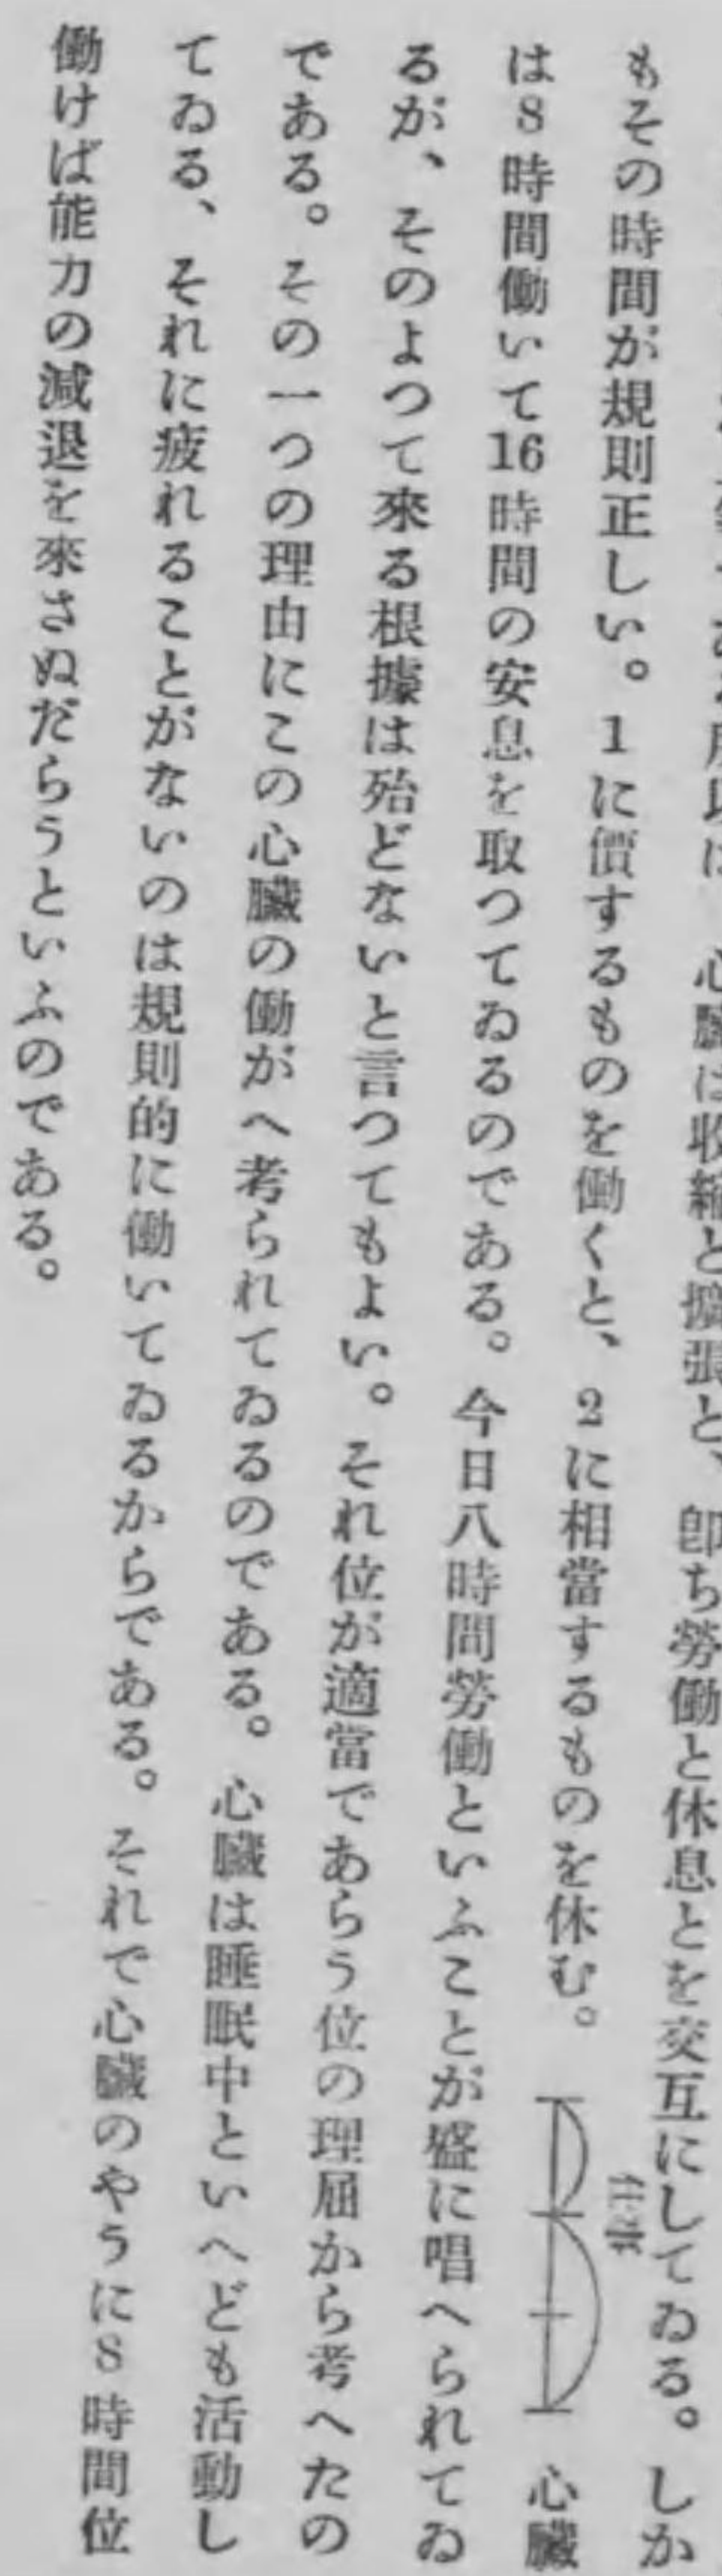 心臓は收縮と擴張と、卽ち勞働と休息とを交互にしてゐる。しか
もその時間が規則正しい。1に價するものを働くと、2に相當するものを休む。
仕事
心臓
は8時間働いて16時間の安息を取つてゐるのである。今日八時間勞働といふことが盛に唱へられてゐ
るが、そのよつて來る根據は殆どないと言つてもよい。それ位が適當であらう位の理屈から考へたの
である。その一つの理由にこの心臓の働がへ考られてゐるのである。心臓は睡眠中といへども活動し
てゐる、それに疲れることがないのは規則的に働いてゐるからである。それで心臓のやうに8時間位
働けば能力の減退を來さぬだらうといふのである。